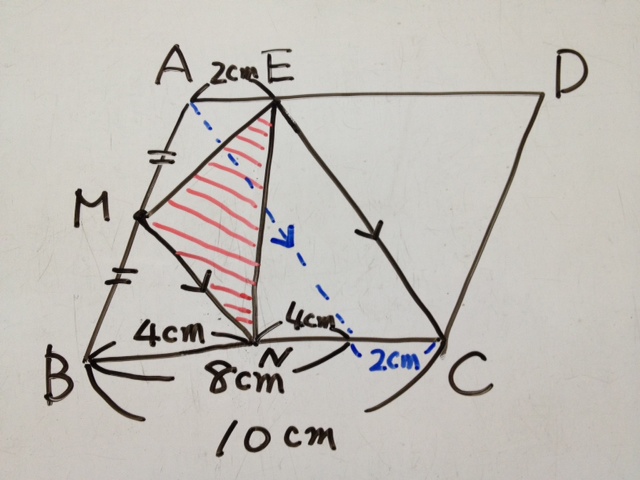 A 2cm E D
M
4cm 4cm
B 8cm N 2cm C
10cm